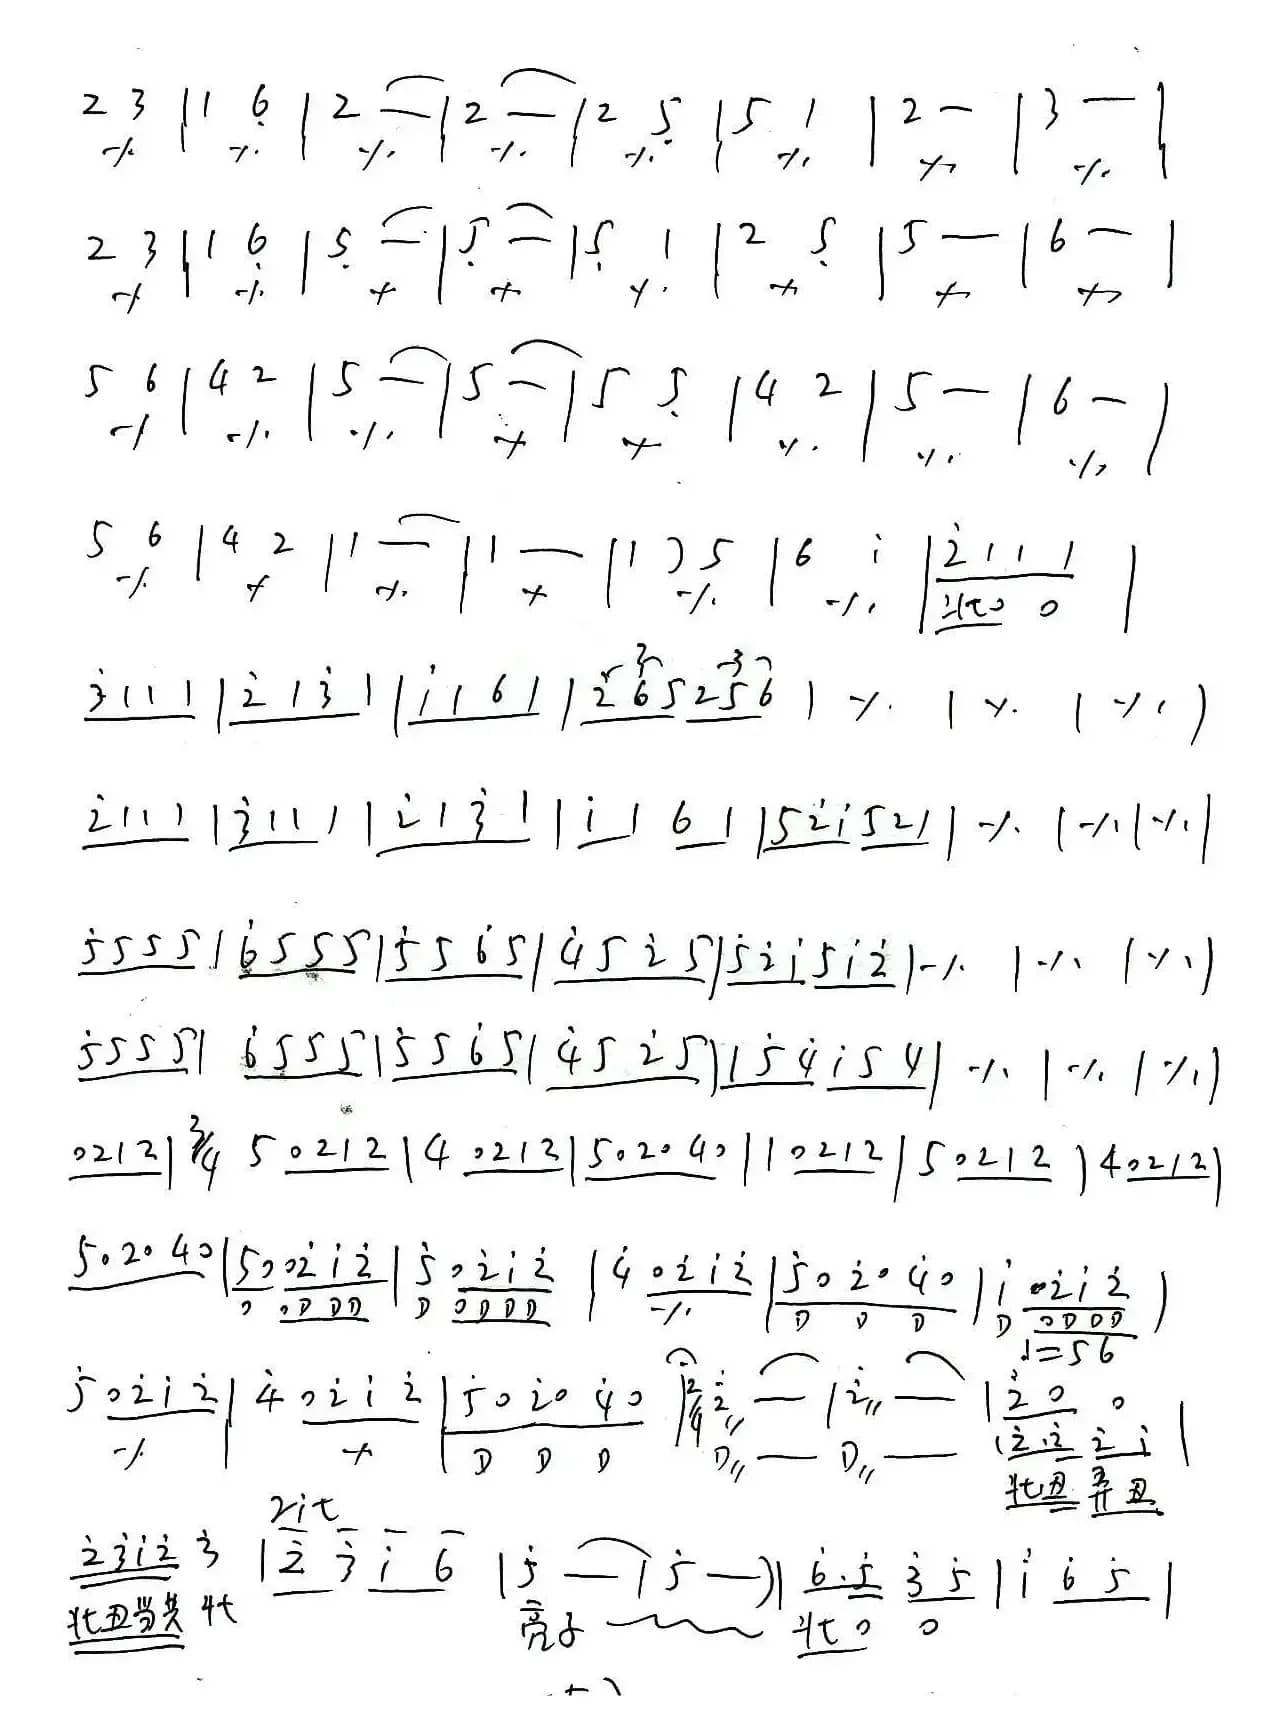 2 3 | 1 6̣ | 2 — | 2 — | 2 5̣ | 5 1 | 2 — | 3 — |
·/. ·/. ·/. ·/. ·/. ·/. ·/. ·/.
2 3 | 1 6̣ | 5̣ — | 5̣ — | 5̣ 1 | 2 5̣ | 5 — | 6 — |
·/. ·/. ·/. ·/. ·/. ·/. ·/. ·/.
5 6 | 4 2 | 5 — | 5 — | 5 5̣ | 4 2 | 5 — | 6 — |
·/. ·/. ·/. ·/. ·/. ·/. ·/. ·/.
5 6 | 4 2 | 1 — | 1 — | 1 ) 5 | 6 i̇ | 2̇ 1 1 1 |
·/. ·/. ·/. ·/. ·/. ·/. 0 0
3̇ 1 1 1 | 2̇ 1 3̇ 1 | i̇ 1 6 1 | 2 6 5 2 5 6 | ·/. | ·/. | ·/. |
3 3
2̇ 1 1 1 | 3̇ 1 1 1 | 2̇ 1 3̇ 1 | i̇ 1 6 1 | 5 2̇ i̇ 5 2 1 | ·/. | ·/. | ·/. |
5̇ 5 5 5 | 6̇ 5 5 5 | 5̇ 5 6̇ 5 | 4̇ 5 2̇ 5 | 5̇ 2̇ i̇ 5 i̇ 2̇ | ·/. | ·/. | ·/. |
5̇ 5 5 5 | 6̇ 5 5 5 | 5̇ 5 6̇ 5 | 4̇ 5 2̇ 5 | 1 5̇ 4̇ i̇ 5 4 | ·/. | ·/. | ·/. |
0 2 1 2 | 3/4 5 0 2 1 2 | 4 0 2 1 2 | 5 0 2 0 4 0 | 1 0 2 1 2 | 5 0 2 1 2 | 4 0 2 1 2 |
5 0 2 0 4 0 | 5 0 0 2̇ i̇ 2̇ | 5̇ 0 2̇ i̇ 2̇ | 4̇ 0 2̇ i̇ 2̇ | 5̇ 0 2̇ 0 4̇ 0 | i̇ 0 2̇ i̇ 2̇ |
0 0 D D D D 0 D D D ·/. D D D D 0 D D D
♩=56
5̇ 0 2̇ i̇ 2̇ | 4̇ 0 2̇ i̇ 2̇ | 5̇ 0 2̇ 0 4̇ 0 | 2/4 2̇ — | 2̇ — | 2̇ 0 0 |
·/. ·/. D D D D — D — ( 2̇ . 2̇ 2̇ i̇
rit
2̇ 3̇ i̇ 2̇ 3̇ | 2̇ 3̇ i̇ 6 | 5̇ — | 5̇ — ) | 6̇ . 5̇ 3̇ 5̇ | i̇ 6̇ 5̇ |
亮子 0 0